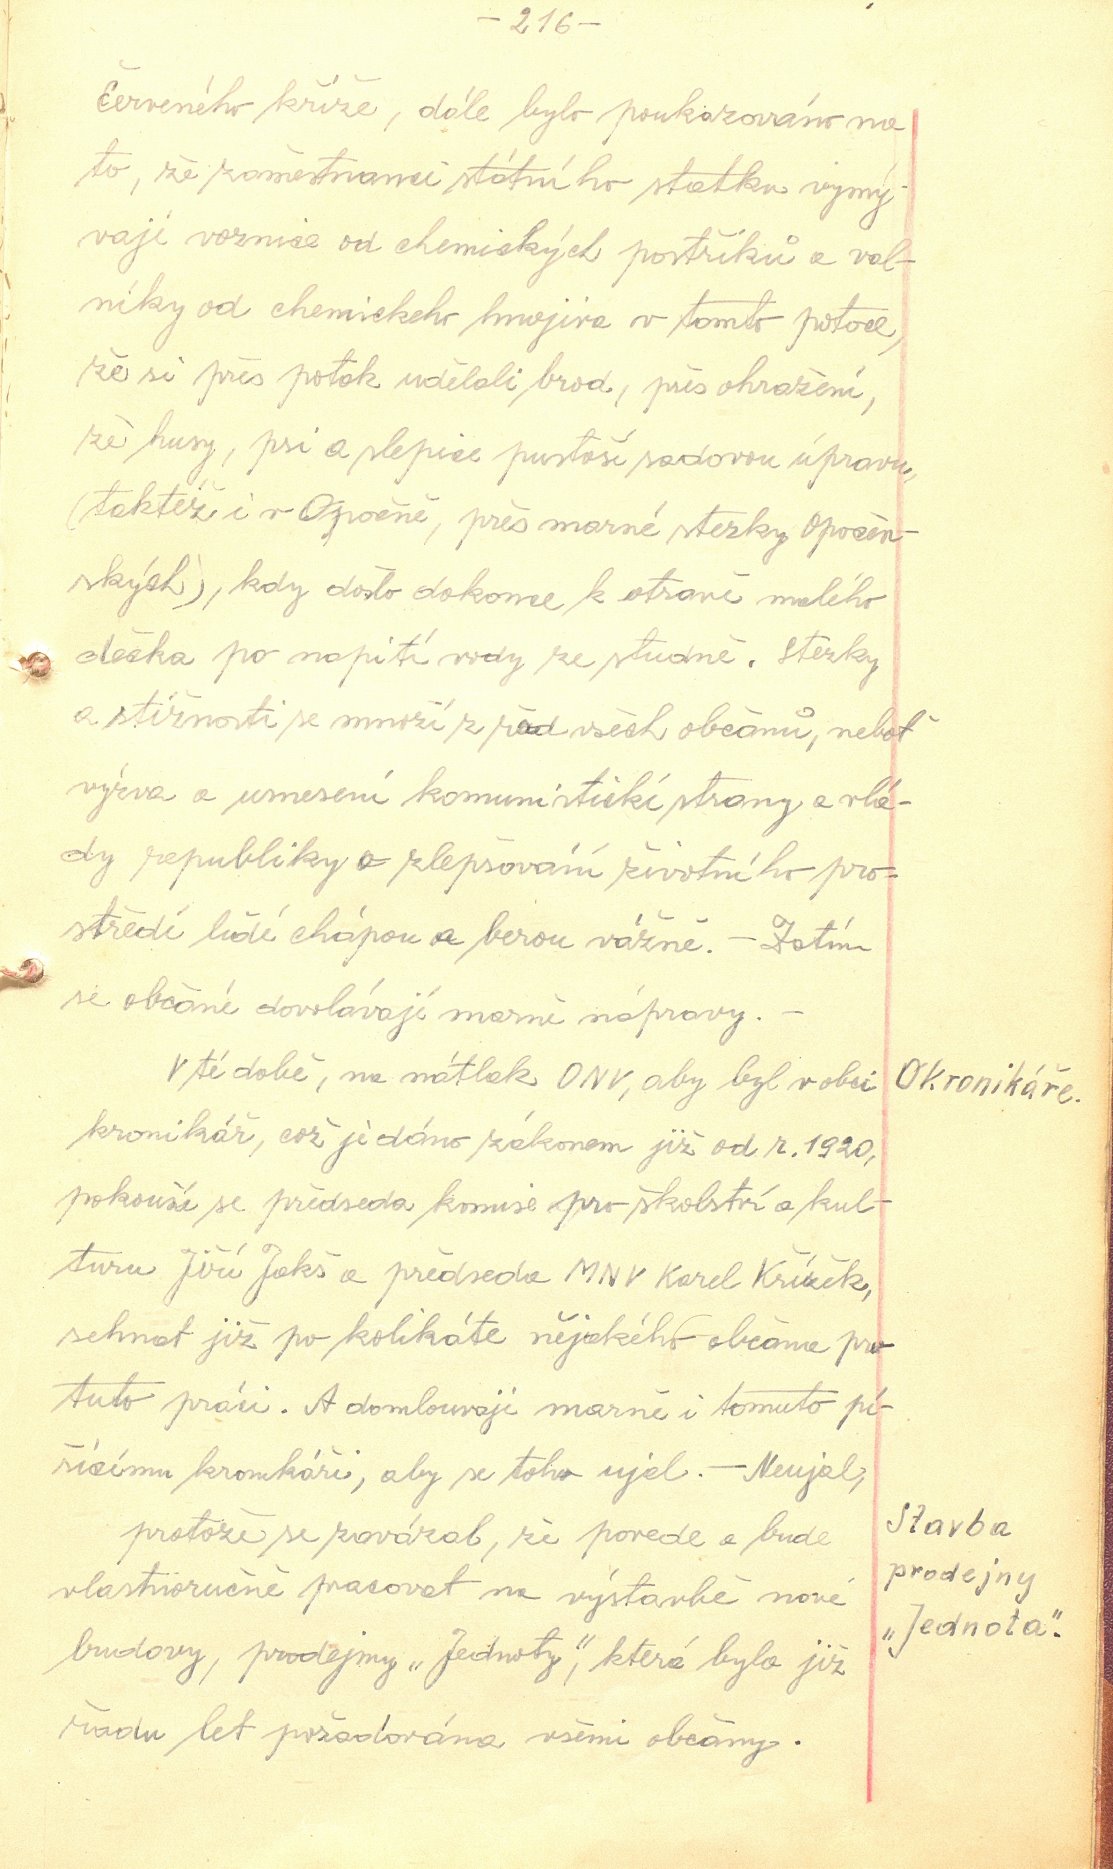 - 216 -
Červeného kříže, dále bylo poukazováno na
to, že zaměstnanci státního statku vymý-
vají voznice od chemických postřiků a val-
níky od chemickeho hnojiva v tomto potoce,
že si přes potok udělali brod, přes ohražení,
že husy, psi a slepice pustoší sadovou úpravu,
(taktéž i v Opočně, přes marné stezky Opočen-
ských), kdy došlo dokonce k otravě malého
děcka po napití vody ze studně. Stezky
a stížnosti se množí z řad všech občanů, neboť
výzva a usnesení komunistické strany a vlá-
dy republiky o zlepšování životního pro-
středí lidé chápou a berou vážně. - Zatím
se občané dovolávají marně nápravy. -
V té době, na nátlak ONV, aby byl v obci
O kronikáře.
kronikář, což je dáno zákonem již od r. 1920,
pokouší se předseda komise pro školství a kul-
turu Jiří Jakš a předseda MNV Karel Křížek,
sehnat již po kolikáte nějakého občana pro
tuto práci. A domlouvají marně i tomuto pí-
šícímu kronikáři, aby se toho ujal. - Neujal,
protože se zavázal, že povede a bude
Stavba
prodejny
„Jednota".
vlastnoručně pracovat na výstavbě nové
budovy, prodejny „Jednoty", která byla již
řadu let požadována všemi občany.